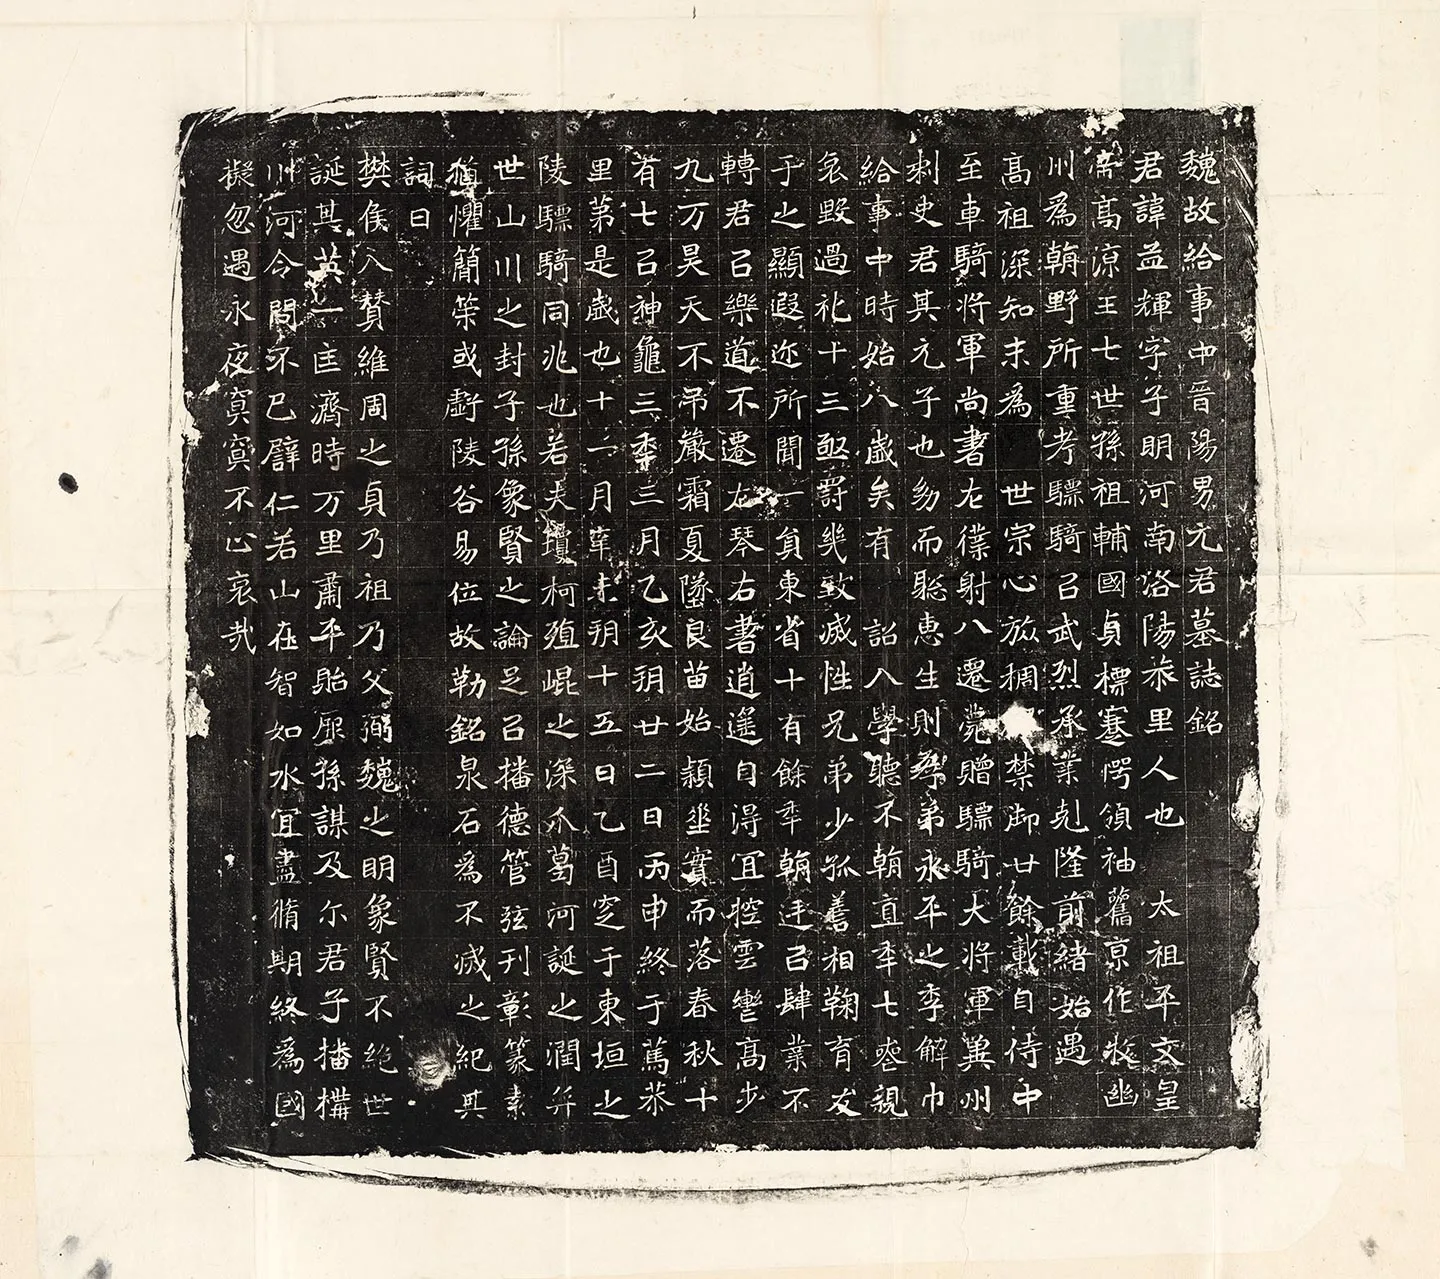 魏故給事中晉陽男元君墓誌銘
君諱益輝字子明河南洛陽旅里人也　太祖平文皇
帝高涼王七世孫祖輔國貞標謇愕領袖舊京作牧幽
州為朝野所重考驃騎召武烈承業剋隆前緒始遇
高祖深知末為　世宗心旅棡　禁御廿餘載自侍中
至車騎將軍尚書左僕射八遷薨贈驃騎大將軍冀州
刺史君其元子也幼而聡恵生則孝弟永平之季解巾
給事中時始八歲矣有　詔入學聽不朝直年七喪親
哀毀過礼十三亟罸幾致滅性兄弟少孤善相鞠育友
于之顯遐迩所聞一負東省十有餘年朝迋召肆業不
轉君召樂道不遷左琴右書逍遙自得冝控雲轡高步
九万昊天不吊嚴霜夏墜良苗始穎垂實而落春秋十
有七召神龜三季三月乙亥朔廿二日丙申終于篤恭
里苐是歲也十二月辛未朔十五日乙酉窆于東垣之
陵驃騎同兆也若夫瓊柯殖崐之深爪葛河誕之潤弁
世山川之封子孫象賢之論足召播德管弦刊彰篆素
猶懼簡筞或虧陵谷易位故勒銘泉石為不滅之紀其
詞曰
樊侯入賛維周之貞乃祖乃父弼魏之明象賢不絕世
誕其英一匡濟時万里肅平貽厥孫謀及尒君子播構
川河令問不巳譬仁若山在智如水冝盡脩期終為國
擬忽遇永夜寘寘不心哀㢤